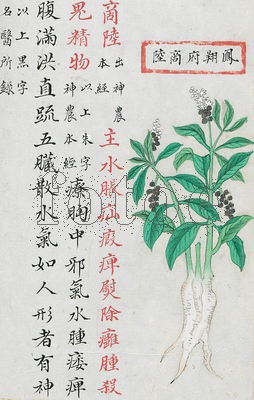 鳳翔府商陸
商陸出神農本經主水脹疝瘕痺熨除癰腫殺
鬼精物以上朱字神農本經療胸中邪氣水腫痿痺
腹滿洪直疏五臟散水氣如人形者有神
以上黑字名醫所錄